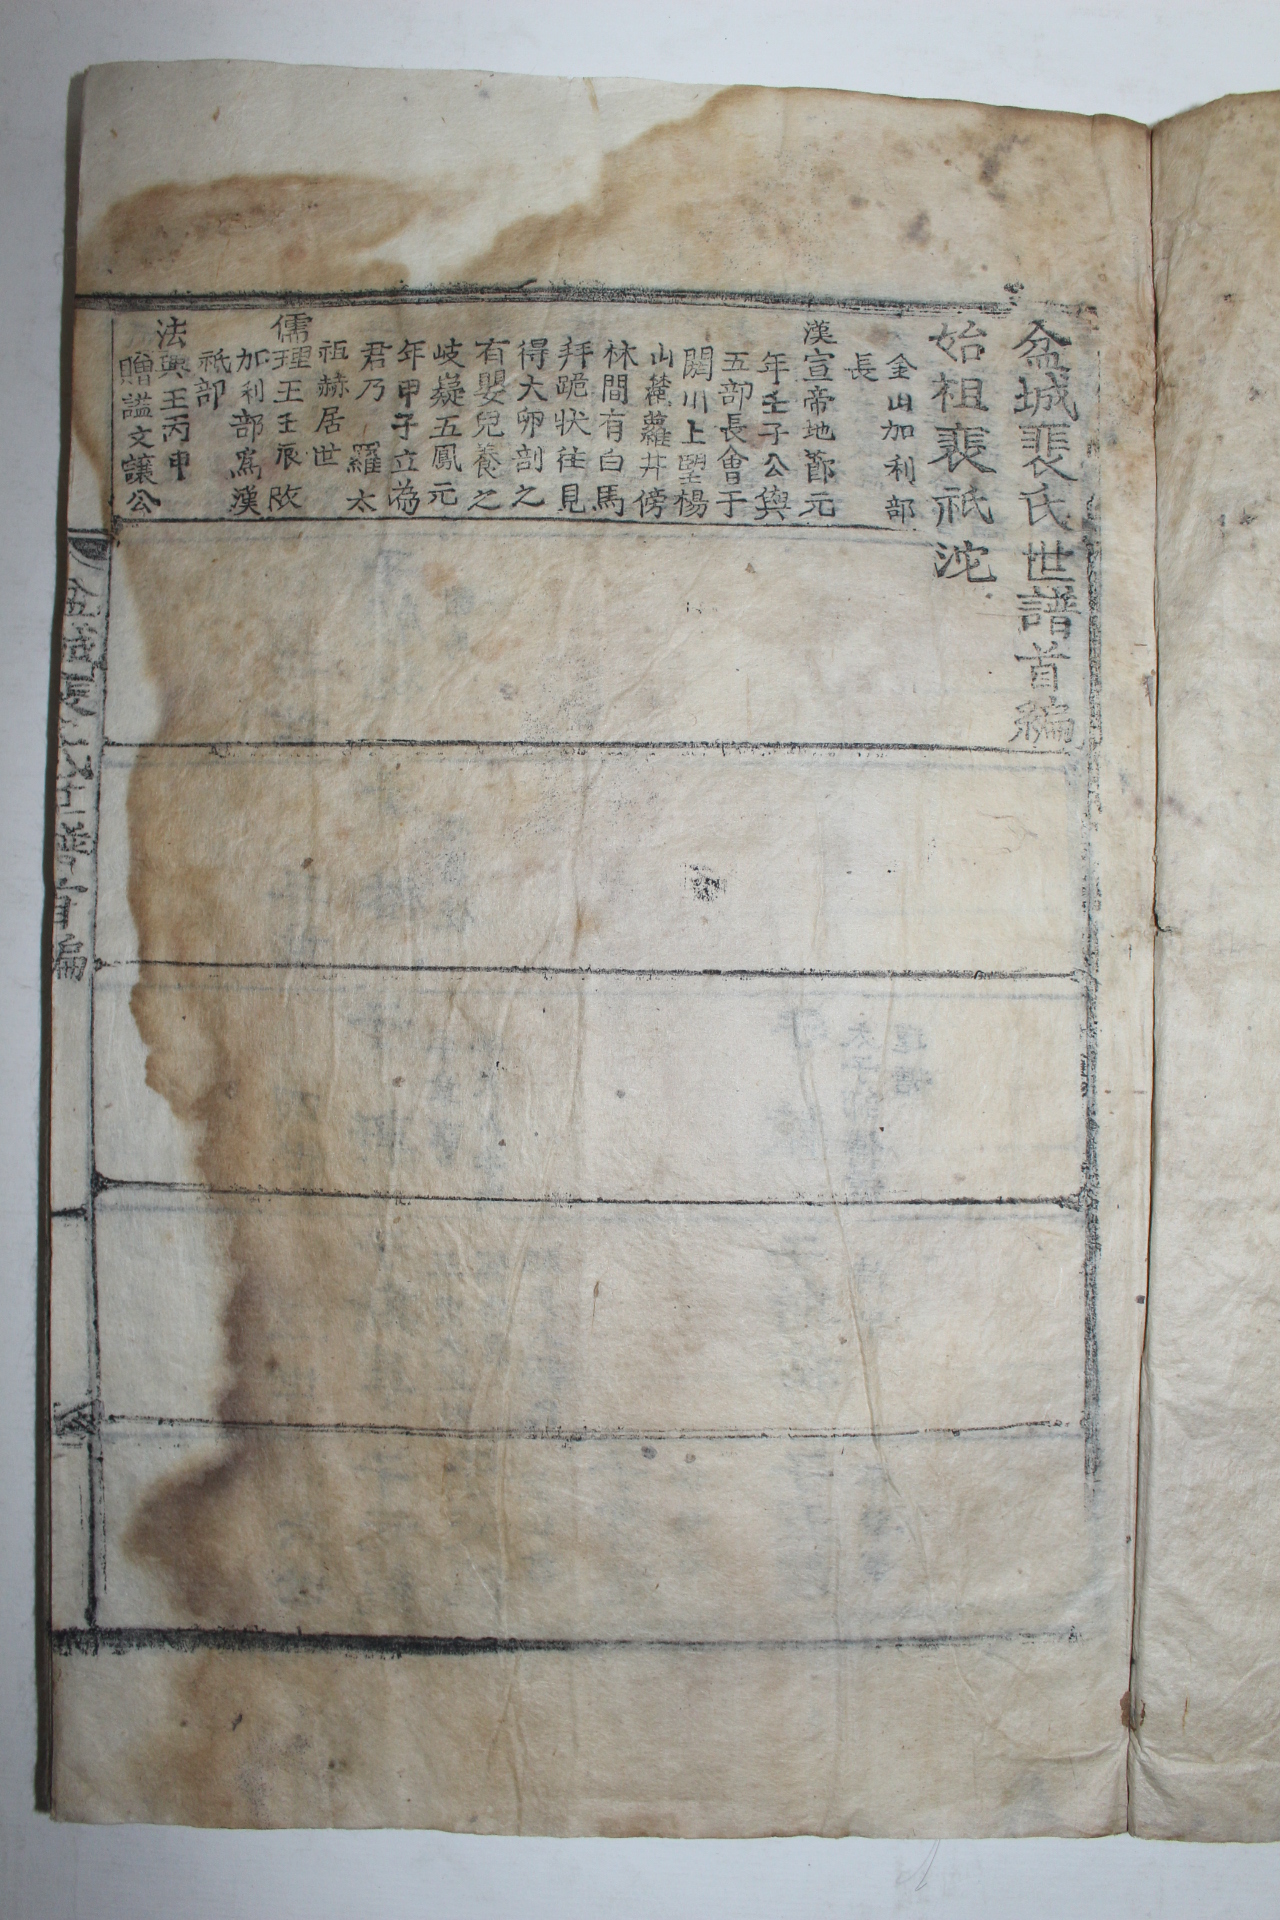 盆城裴氏世譜首編
始祖裴祇沱
金山加利部
長
漢宣帝地節元
年壬子公與
五部長會于
閼川上望楊
山麓蘿井傍
林間有白馬
拜跪状徃見
得大卵剖之
有嬰兒養之
岐嶷五鳳元
年甲子立為
君乃 羅太
祖赫居世
儒理王壬辰改
加利部為漢
祇部
法興王丙申
贈謚文讓公
盆城裴氏世譜首編